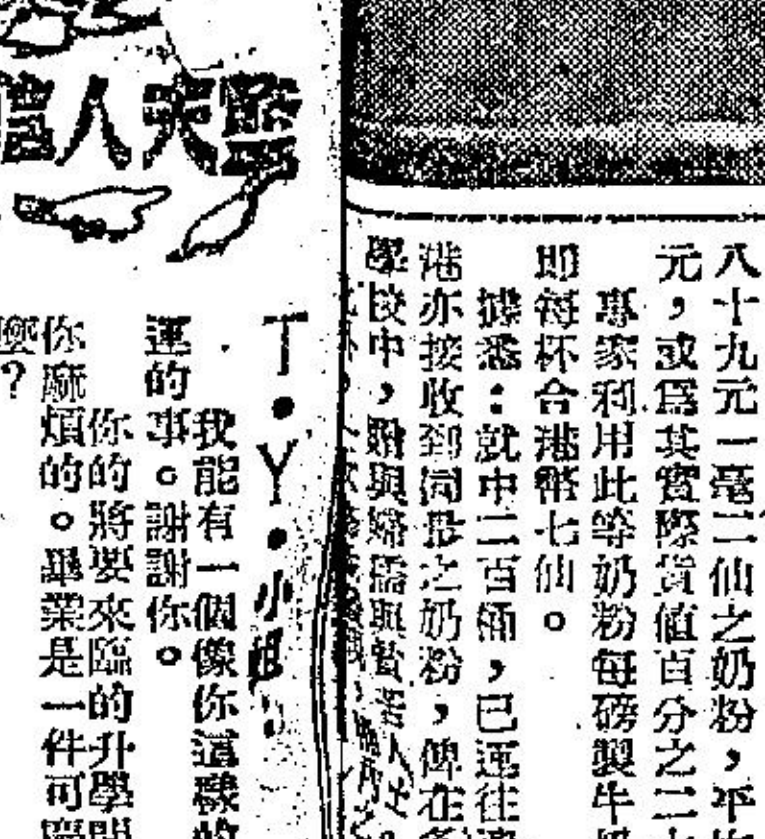 八十九元一毫二仙之奶粉，平均
元，或爲其實際貨值百分之二十
專家利用此等奶粉每磅製牛
即每杯合港幣七仙。
據悉：就中二百桶，已運往
港亦接收到同量之奶粉，俾在
學校中，贈與婦孺與貧苦人士
醫夫人
T·Y·小姐：
我能有一個像你這樣的
運的事。謝謝你。
你的將要來臨的升學問
你麻煩的。畢業是一件可
麼？